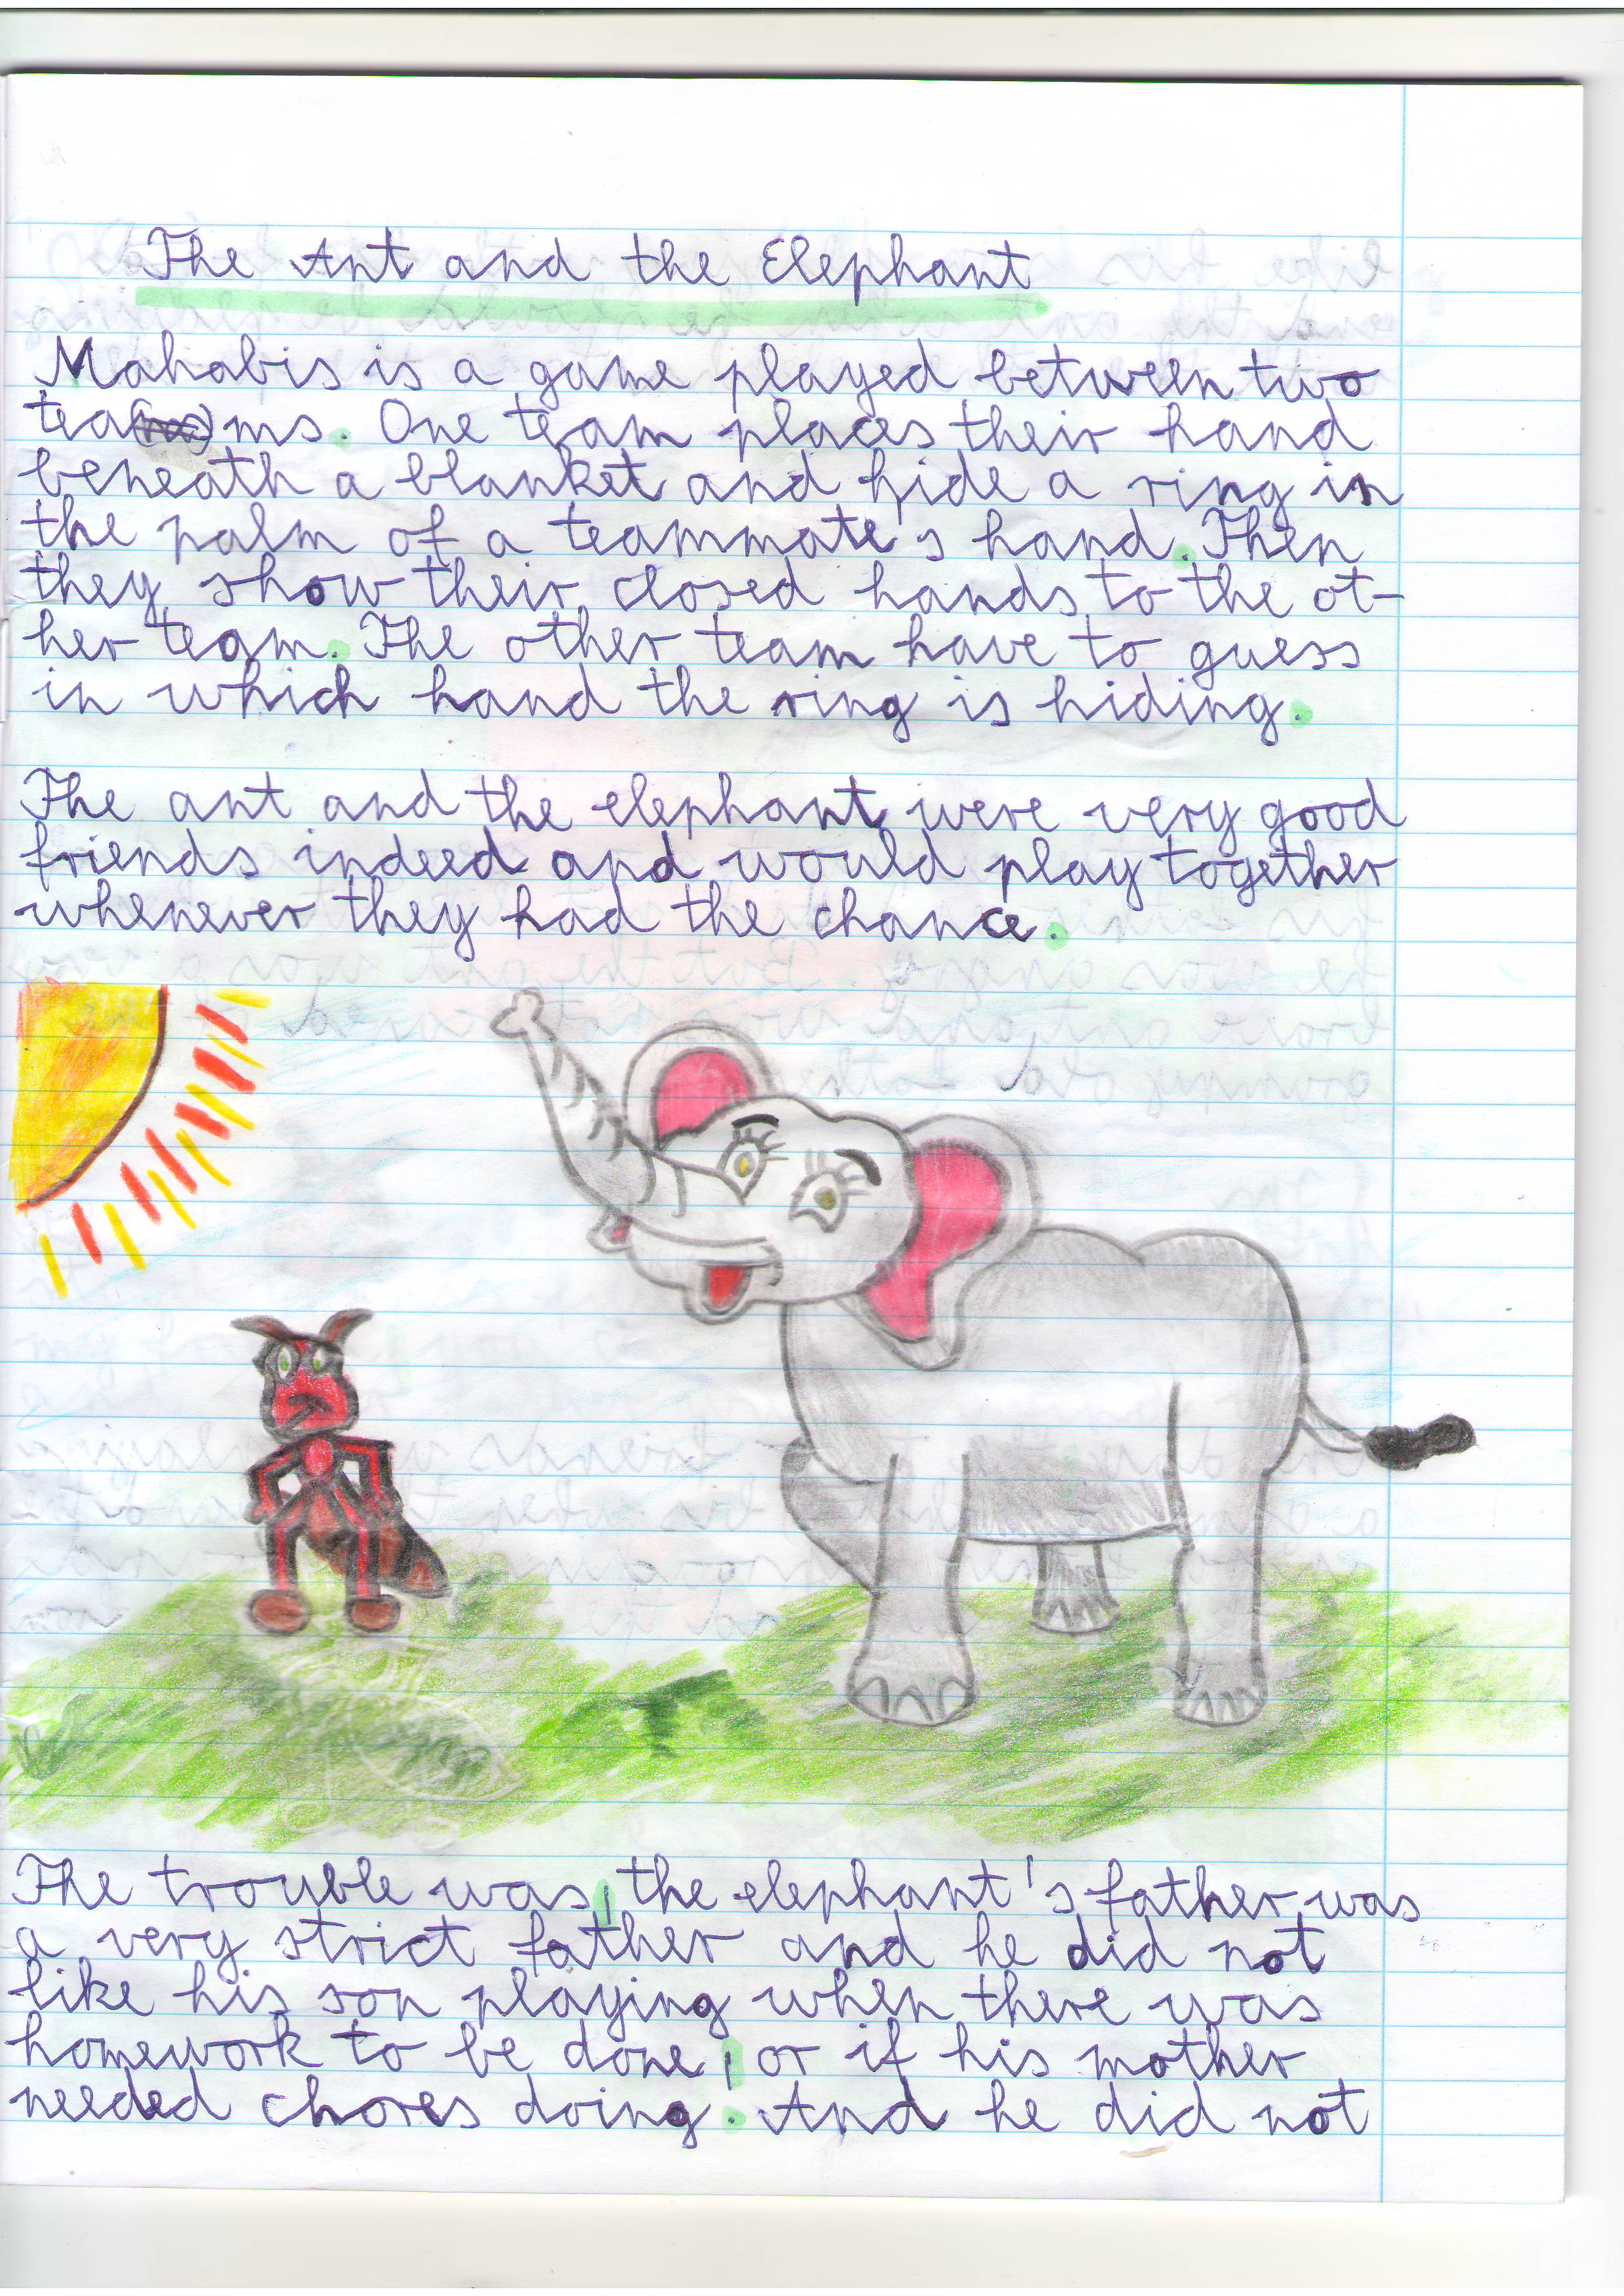 The Ant and the Elephant
Mahabis is a game played between two
teams. One team places their hand
beneath a blanket and hide a ring in
the palm of a teammate's hand. Then
they show their closed hands to the ot-
her team. The other team have to guess
in which hand the ring is hiding.
The ant and the elephant were very good
friends indeed and would play together
whenever they had the chance.
The trouble was, the elephant's father was
a very strict father and he did not
like his son playing when there was
homework to be done, or if his mother
needed chores doing. And he did not